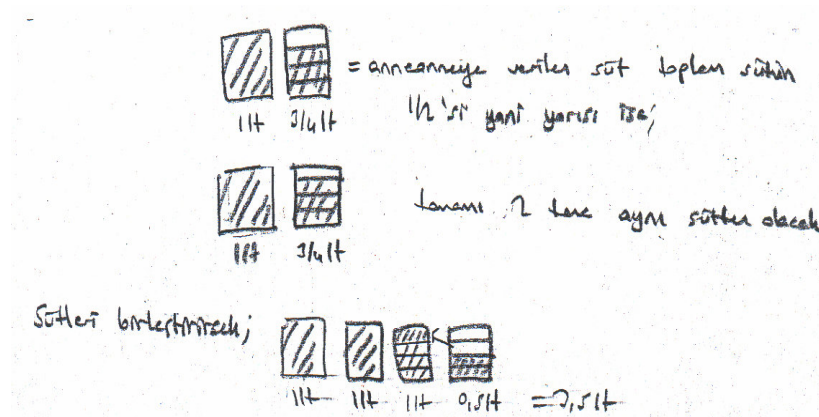 = anneanneye verilen süt toplam sütün
1/2'si yani yarısı ise;
1lt 3/4lt
tamamı 2 tane aynı sütten olacak
1lt 3/4lt
Sütleri birleştirirsek;
1lt 1lt 1lt 0,5lt = 3,5lt